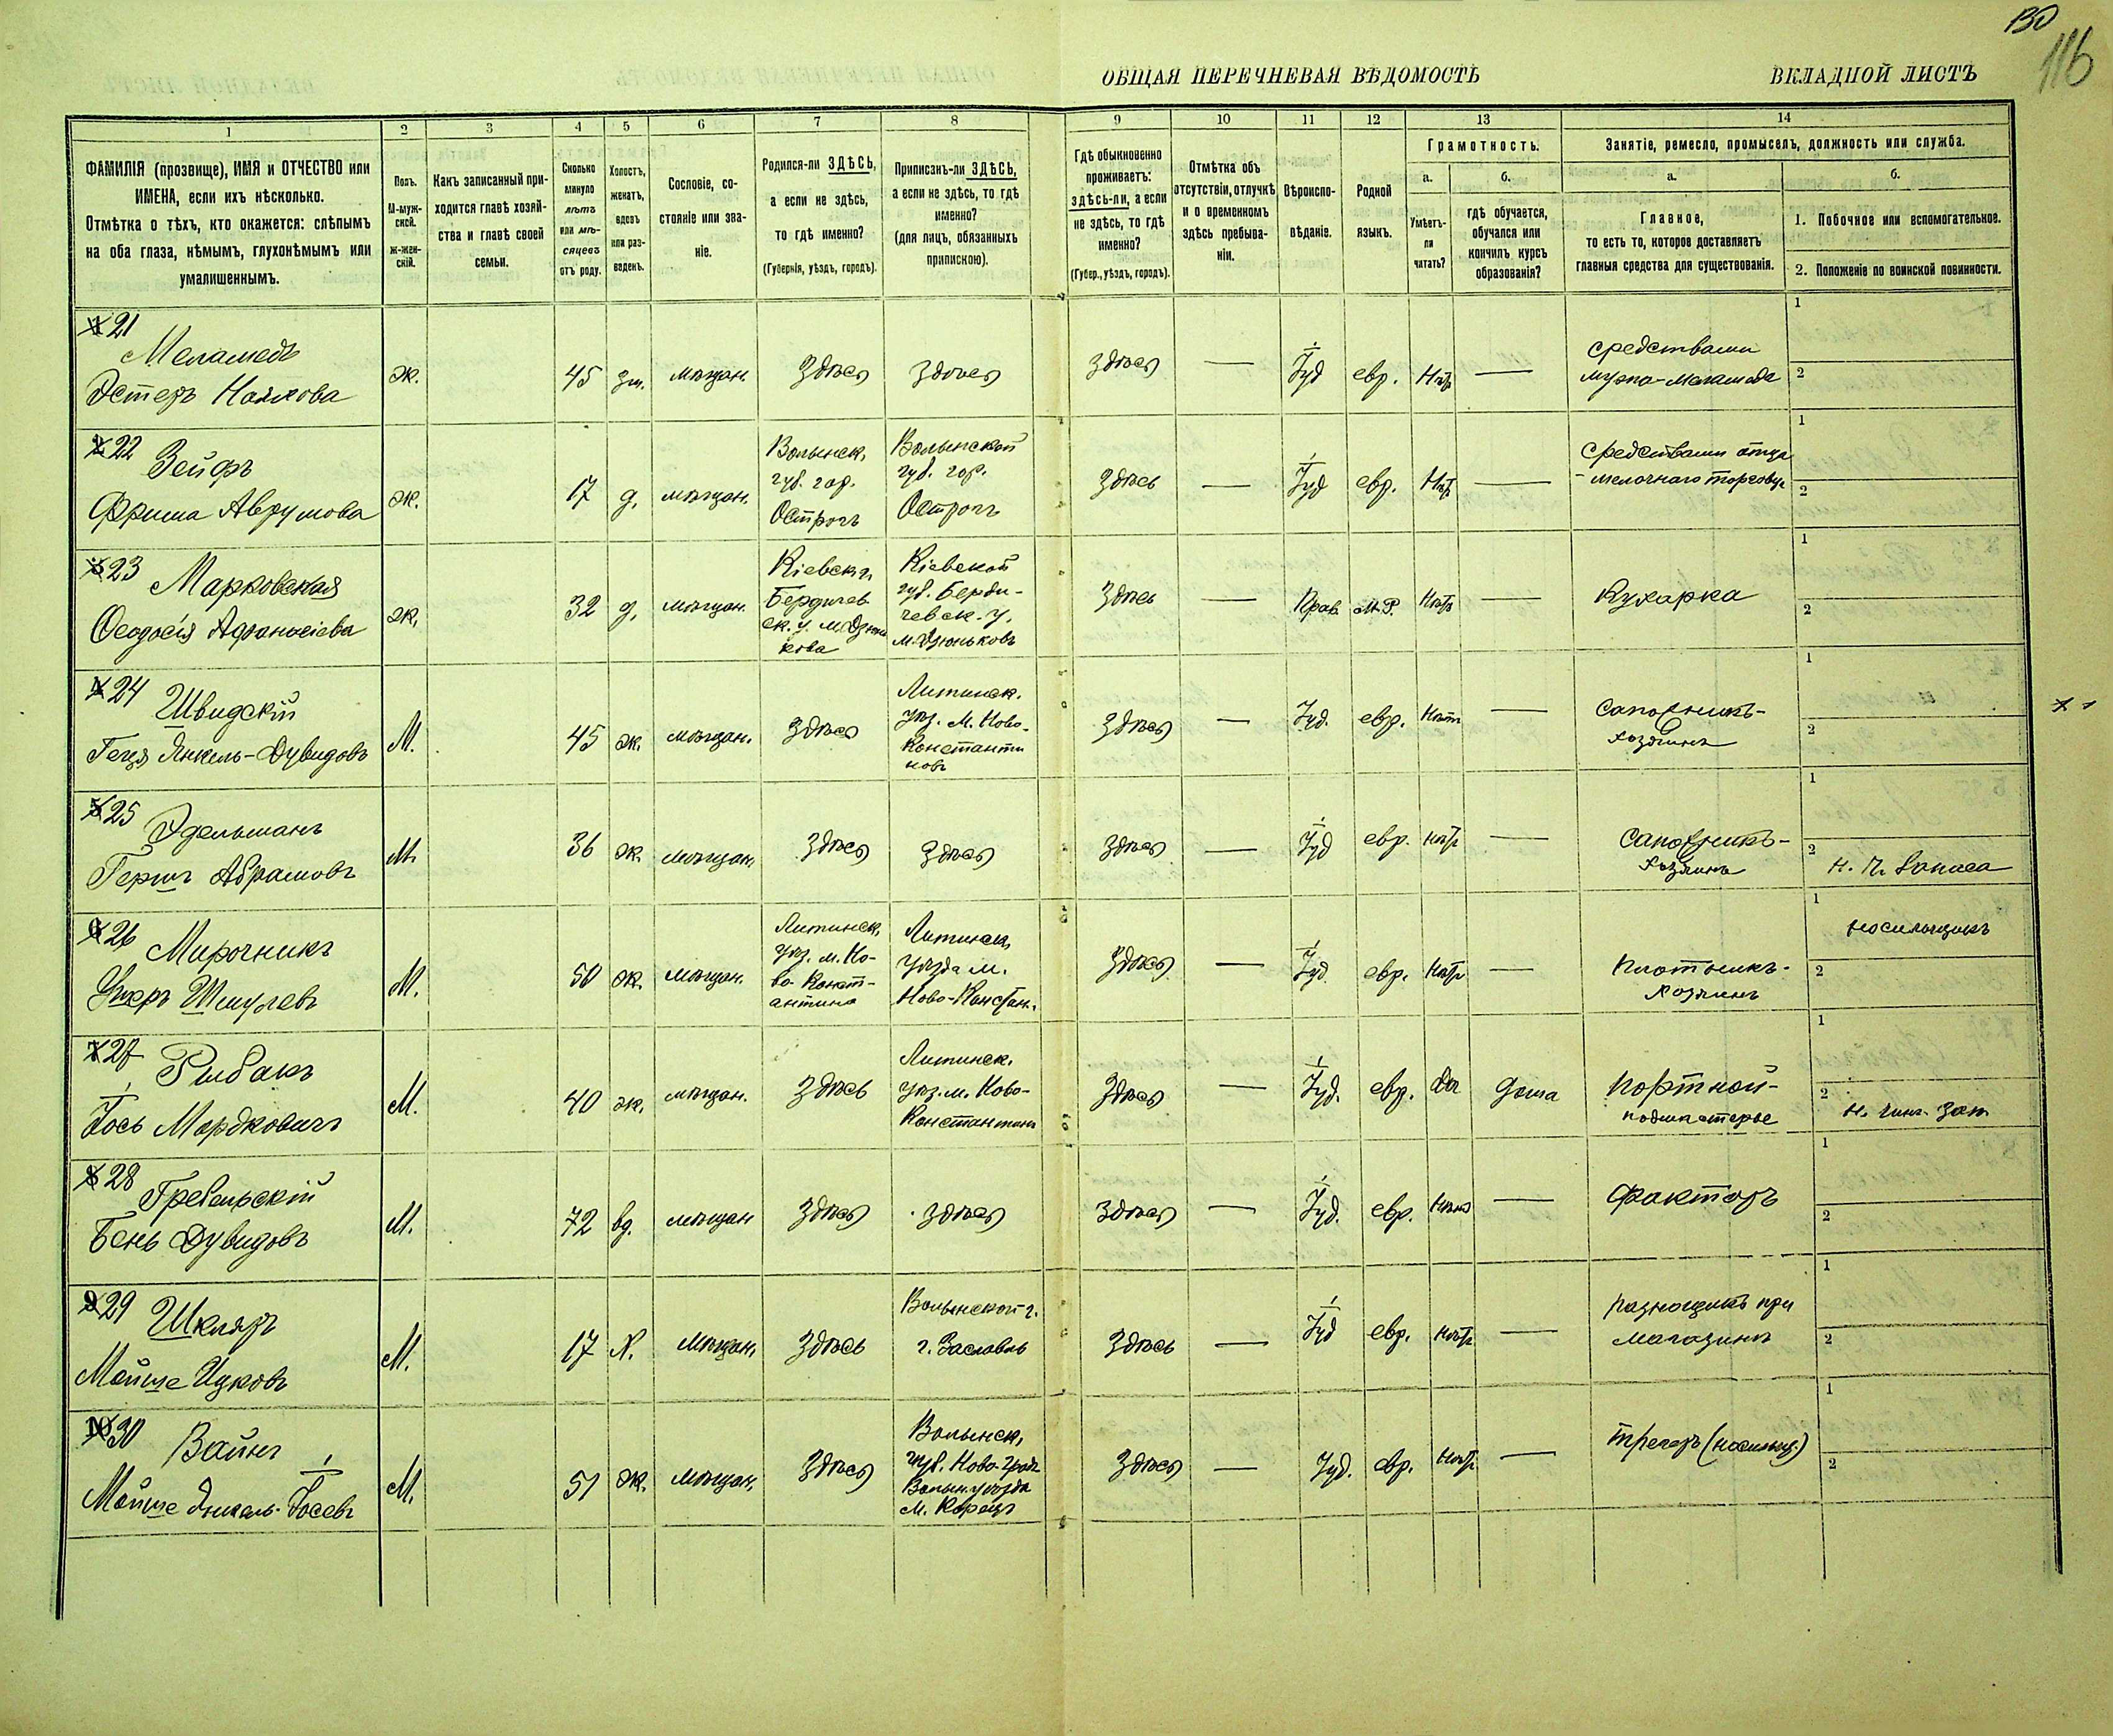 130
116
ОБЩАЯ ПЕРЕЧНЕВАЯ ВѢДОМОСТЬ
ВКЛАДНОЙ ЛИСТЪ
1 2 3 4 5 6 7 8 9 10 11 12 13 14
ФАМИЛІЯ (прозвище), ИМЯ и ОТЧЕСТВО или
ИМЕНА, если ихъ нѣсколько.
Отмѣтка о тѣхъ, кто окажется: слѣпымъ
на оба глаза, нѣмымъ, глухонѣмымъ или
умалишеннымъ.
Полъ.
М-муж-
ской.
ж-жен-
скій.
Какъ записанный при-
ходится главѣ хозяй-
ства и главѣ своей
семьи.
Сколько
минуло
лѣтъ
или мѣ-
сяцевъ
отъ роду.
Холостъ,
женатъ,
вдовъ
или раз-
веденъ.
Сословіе, со-
стояніе или зва-
ніе.
Родился-ли ЗДѢСЬ,
а если не здѣсь,
то гдѣ именно?
(Губернія, уѣздъ, городъ).
Приписанъ-ли ЗДѢСЬ,
а если не здѣсь, то гдѣ
именно?
(для лицъ, обязанныхъ
припискою).
Гдѣ обыкновенно
проживаетъ:
здѣсь-ли, а если
не здѣсь, то гдѣ
именно?
(Губер., уѣздъ, городъ).
Отмѣтка объ
отсутствіи, отлучкѣ
и о временномъ
здѣсь пребыва-
ніи.
Вѣроиспо-
вѣданіе.
Родной
языкъ.
Грамотность.
а.
Умѣетъ-
ли
читать?
б.
гдѣ обучается,
обучался или
кончилъ курсъ
образованія?
Занятіе, ремесло, промыселъ, должность или служба.
а.
Главное,
то есть то, которое доставляетъ
главныя средства для существованія.
б.
1. Побочное или вспомогательное.
2. Положеніе по воинской повинности.
21
Меламедъ
Эстеръ
ж.
45
зм.
мѣщан.
Здѣсь
Здѣсь
Здѣсь
—
Іуд
евр.
Нѣтъ
—
средствами
мужа-меламеда
1
2
22
Зейфъ
Фрима Аврумова
ж.
17
д.
мѣщан.
Волынск.
губ. гор.
Острогъ
Волынской
губ. гор.
Острогъ
Здѣсь
—
Іуд
евр.
Нѣтъ
—
средствами отца
-мелочнаго торговца
1
2
23
Марковская
Ѳеодосія Афанасіева
ж.
32
д.
мѣщан.
Кіевск. г.
Бердичев
ск. у. м. Дзюнь
кова
Кіевской
губ. Берди-
чевск. у.
м. Дзюньковъ
Здѣсь
—
Прав.
М.Р.
Нѣтъ
—
Кухарка
1
2
24
Швидскій
Геця Янкель-Дувидовъ
М.
45
ж.
мѣщан.
Здѣсь
Литинск.
уѣз. м. Ново-
константи
новъ
Здѣсь
—
Іуд.
евр.
Нѣтъ
—
сапожникъ-
хозяинъ
1
2
25
Эдельманъ
Гершъ Абрамовъ
М.
36
ж.
мѣщан.
Здѣсь
Здѣсь
Здѣсь
—
Іуд
евр.
нѣтъ
—
Сапожникъ-
хозяинъ
1
2
26
Мирочникъ
Ушеръ Шмулевъ
М.
50
ж.
мѣщан.
Литинск.
уѣз. м. Но-
во-Конст-
антино
Литинск.
уѣзда м.
Ново-Констан.
Здѣсь
—
Іуд.
евр.
нѣтъ
—
плотникъ-
хозяинъ
1
носильщикъ
2
27
Рыбакъ
Іось Мордковичъ
М.
40
ж.
мѣщан.
Здѣсь
Литинск.
уѣз. м. Ново-
Константинъ
Здѣсь
—
Іуд.
евр.
Да
дома
портной-
подмастерье
1
2
28
Гребельскій
Бень Дувидовъ
М.
72
вд.
мѣщан
Здѣсь
Здѣсь
Здѣсь
—
Іуд.
евр.
Нѣтъ
—
факторъ
1
2
29
Шкляръ
Мойше Ицковъ
М.
17
Х.
Мѣщан.
Здѣсь
Волынской г.
г. Заславль
Здѣсь
—
Іуд
евр.
нѣтъ
—
разнощикъ при
магазинѣ
1
2
30
Вайнъ
Мойше Янкель-Іосевъ
М.
51
ж.
мѣщан.
Здѣсь
Волынск.
губ. Ново-град
Волын. уѣзда
м. Корецъ
Здѣсь
—
Іуд.
евр.
нѣтъ
—
трегеръ (носильщ.)
1
2